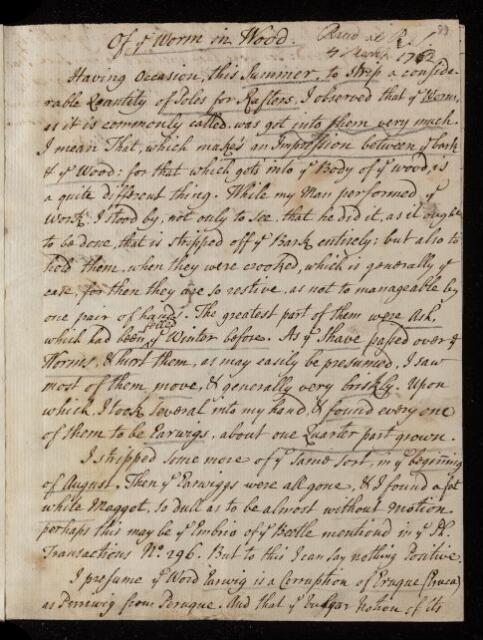 Of yͤ Worm in Wood. Read at R. S.
4 March 1702
89
Having Occasion, this Summer, to Strip a conside-
rable Quantity of Poles for Rafters, I observed that yͤ Worm,
as it is commonly called, was got into them very much.
I mean That, which makes an Impression between yͤ bark
& yͤ Wood: for that which gets into yͤ Body of yͤ wood, is
a quite different thing. While my Man performed yͤ
Work, I stood by, not only to See, that he did it, as it ought
to be done, that is stripped off yͤ Bark entirely: but also to
hold them, when they were crooked, which is generally yͤ
case, for then they are so restive, as not to manageable by
one pair of hands. The greatest part of them were Ash,
which had been felled yͤ Winter before. As yͤ Shave passed over yͤ
Worms, & hurt them, as may easily be presumed, I saw
most of them move, & generally very briskly. Upon
which, I took Several into my hand, & found every one
of them to be Earwigs, about one Quarter part grown.
I stripped Some more of yͤ Same Sort, in yͤ beginning
of August. Then yͤ Earwiggs were all gone, & I found a fat
white Maggot, so dull as to be almost without Motion
perhaps this may be yͤ Embrio of yͤ Beetle mentiond in yͤ Ph.
Transactions Nº. 296. But to this I can say nothing Positive.
I presume yͤ Word Earwig is a Corruption of Eruque (Eruca)
as Perriwig from Peruque. And that yͤ Vulgar Notion of its